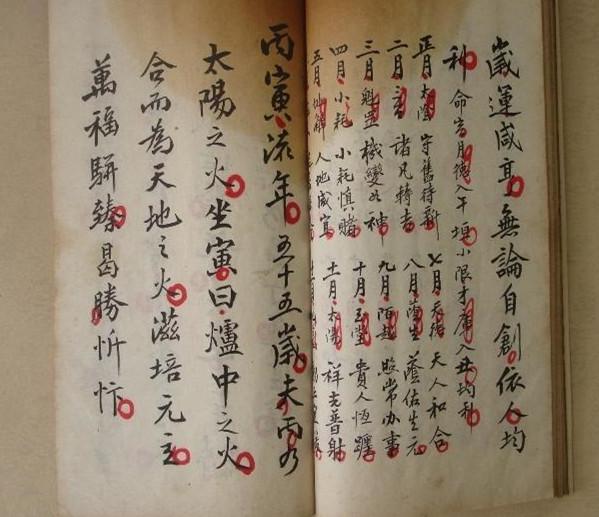 歲運咸亨無論自創依人均
利命宮月德入午垣小限才庫入丑均利
正月太陰 守舊待新 七月天德 天人和合
二月 諸凡轉吉 八月蔭生 蔭佑生元
三月魁罡 機變如神 九月陌越 照常办事
四月小耗 小耗慎賭 十月玉堂 貴人恒躔
五月 人地咸宜 十一月太陽 祥光普射
丙寅流年五十五歲夫丙乃
太陽之火坐寅曰爐中之火
合而為天地之火滋培元主
萬福駢臻曷勝忻忭